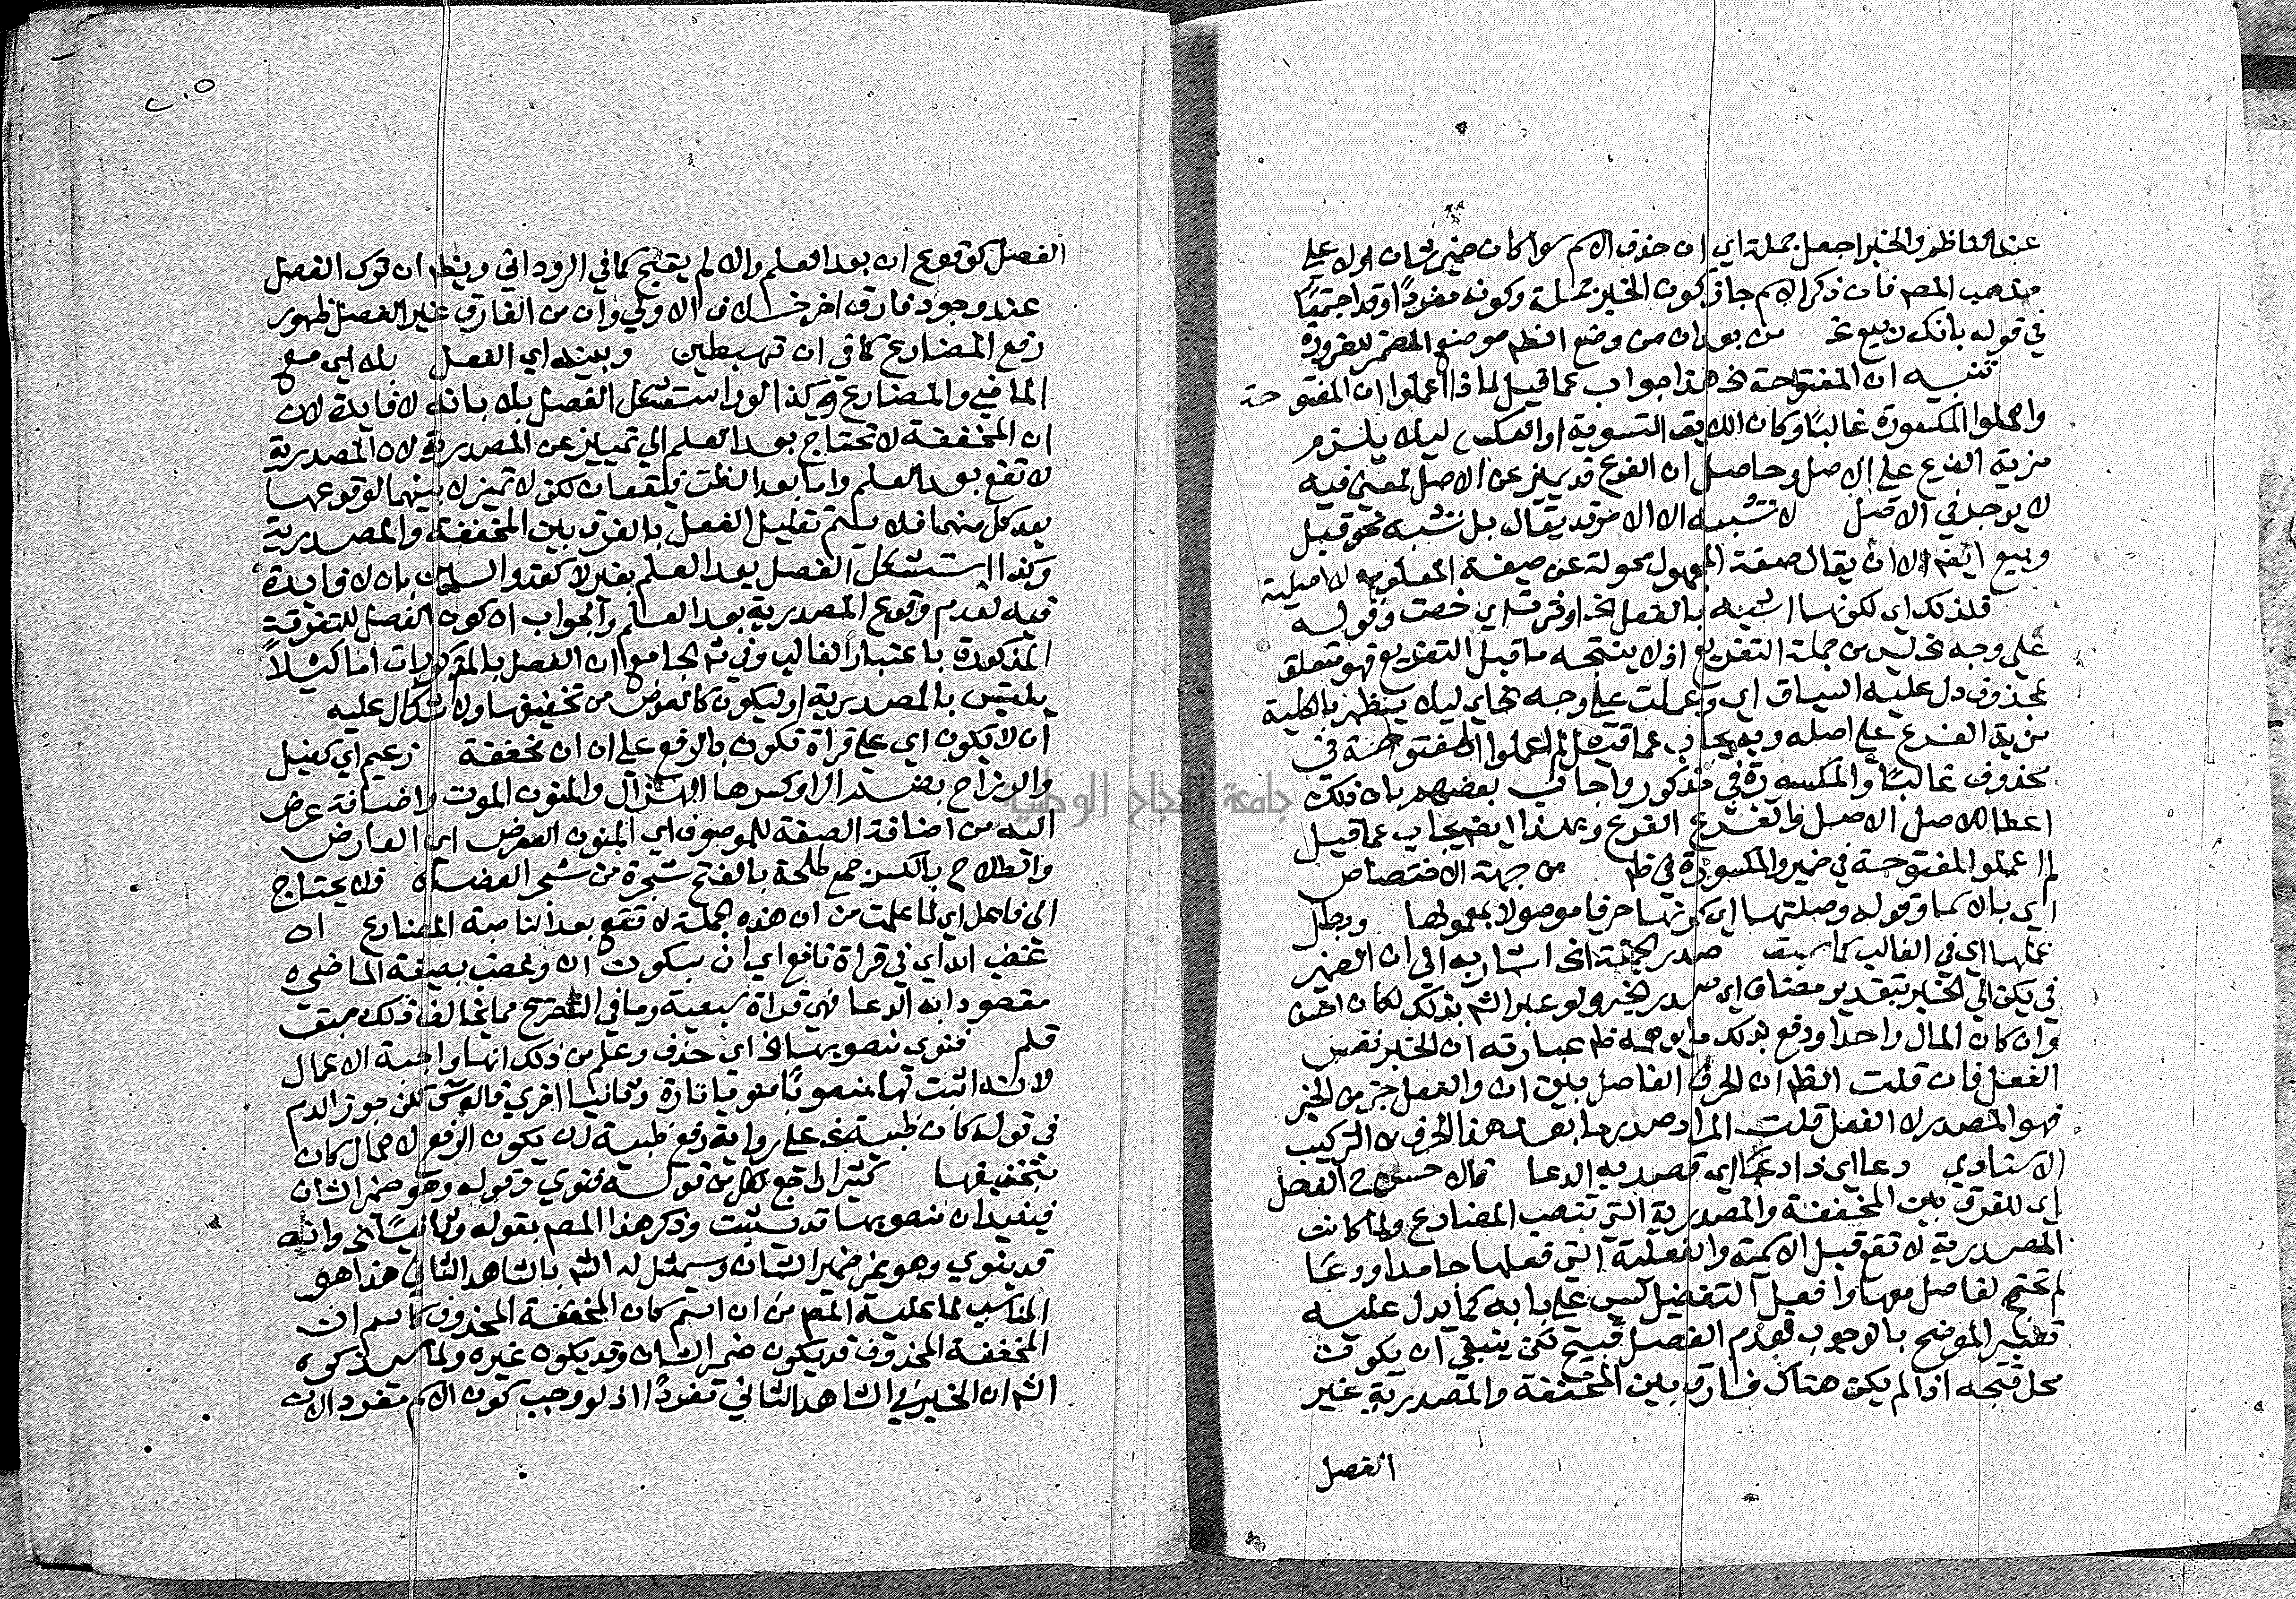 عند الناظم والخبر اجعل جملة اي ان حذف الاسم سوا كان ضمير شان او لا علي
مذهب المصم فان ذكر الاسم جاز كون الخبر جملة وكونه مفردا وقد اجتمعا
في قوله بانك ربيع غـ من بعد ان من وضع الظم موضع المضمر للضرورة
تنبيه ان المفتوحة الخ هذا جواب عما قيل لماذا اعملوا ان المفتوحة
واهملوا المكسورة غالبًا وكان اللايق التسوية او العكس ليلا يلزم
مزية الفرع علي الاصل وحاصل ان الفرع قد يميز عن الاصل لمعني فيه
لا يوجد في الاصل لا تشبه الا الامر قد يقال بل تشبه نحو قيل
وبيع ايضم الا ان يقال صيغة المجهول محولة عن صيغة المعلوم لا اصلية
فلذلك اي لكونها اشبه بالفعل الخ اوثرت اي خصت وقوله
علي وجه الخ ليس من جملة التفريع اذ لا ينتجه ما قبل التفريع فهو متعلق
بمحذوف دل عليه السياق اي وعملت علي وجه الخ اي ليلا يظهر بالكلية
مزية الفرع علي اصله وبه يجاب عما قيل لم اعملوا المفتوحة في
محذوف غالبًا والمكسورة في مذكور واجاب بعضهم بان ذلك
اعطا للاصل الاصل والفرع الفرع وبهذا ايضم يجاب عما قيل
لم اعملوا المفتوحة في ضمير والمكسورة في ظم من جهة الاختصاص
اي بالاسما وقوله وصلتها اي كونها حرفا موصولا بمعمولها ويطل
عملها اي في الغالب كما سبق صدر الجملة الخ اشار به الي ان الضمير
في يكن الي الخبر بتقدير مضاف اي صدر الخبر ولو عبر الشم بذلك لكان احسن
وان كان المال واحدا ودفع بذلك ما يوهمه ظم عبارته ان الخبر نفس
الفعل فان قلت الظم ان الحرف الفاصل بين ان والفعل جزء من الخبر
فهو المصدر لا الفعل قلت المراد صدر ما بعد هذا الحرف من التركيب
الاسنادي دعا اي ذا دعا اي قصد به الدعا قال حسن ح الفصل
اي للفرق بين المخففة والمصدرية التي تنصب المضارع ولما كانت
المصدرية لا تقع قبل الاسمية والفعلية التي فعلها جامد او دعا
لم تحتج لفاصل معها وافعل التفضيل ليس علي بابه كما يدل عليه
تعبير الموضح بالوجوب فعدم الفصل قبيح لكن ينبغي ان يكون
محل قبحه اذا لم يكن هناك فارق بين المخففة والمصدرية غير
الفصل
٢٠٥
الفصل كوقوع ان بعد العلم والا لم يقبح كما في الروداني وينظر ان ترك الفصل
عند وجود فارق اخر خلاف الاولي وان من الفارق غير الفصل ظهور
رفع المضارع كما في ان تهبطين وبينه اي الفعل بلا اي مع
الماضي والمضارع وكذا لو واستشكل الفصل بلا بانه لا فايدة لان
ان المخففة لا تحتاج بعد العلم الي تمييز عن المصدرية لان المصدرية
لا تقع بعد العلم واما بعد الظن فيقعان لكن لا تميز لا بينهما لوقوعها
بعد كل منهما فلا يتم تعليل الفصل بالفرق بين المخففة والمصدرية
وكذا استشكل الفصل بعد العلم بغير لا كقد والسين بان لا فايدة
فيه لعدم وقوع المصدرية بعد العلم والجواب ان كون الفصل للتفرقة
المذكورة باعتبار الغالب وفي شم الجامع ان الفصل بالمذكورات اما لئلا
يلتبس بالمصدرية او ليكون كالعوض من تخفيفها ولا اشكال عليه
ان لا يكون اي علي قراة تكون بالرفع علي ان ان مخففة زعيم اي كفيل
والرزاح بضم الرا وكسرها الهزال والمنون الموت واضافة عرض
اليه من اضافة الصفة للموصوف اي المنون العرض اي العارض
والطلاح بالكسر جمع طلحة بالفتح شجرة من شجر العضاه فلا يحتاج
الي فاصل اي لما علمت من ان هذه الجملة لا تقع بعد الناصبة المضارع ان
غضب الله اي في قراة نافع اي ان بسكون ان وغضب بصيغة الماضي
مقصود ابه الدعا فهي قراة سبعية وما في التصريح مما يخالف ذلك سبق
قلم فنوي منصوبها الخ اي حذف وعلم من ذلك انها واجبة الاعمال
ولانه اثبت لها منصوبًا منويا تارة وثابتا اخري قال سم لكن جوز الدم
في قوله كان ظبية الخ علي رواية رفع ظبية ان يكون الرفع لاهمال كان
بتخفيفها كثيرا راجع لكل من قوله فنوي وقوله وهو ضمير الشان
فيفيد ان منصوبها قد يثبت وذكر هذا المصم بقوله وثابتًا الخ وانه
قد ينوي وهو غير ضمير الشان وسيمثل له الشم بالشاهد الثاني هذا هو
المناسب لما عليه المصم من ان اسم كان المخففة المحذوف كاسم ان
المخففة المحذوف قد يكون ضمير الشان وقد يكون غيره ولما سيذكره
الشم ان الخبر في الشاهد الثاني مفردًا اذ لو وجب كون الاسم مفرد الان
جامعة النجاح الوطنية